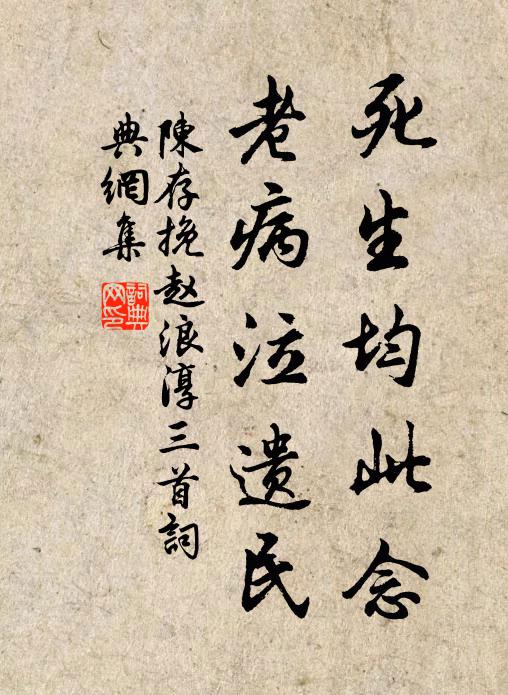 死生均此念
老病泣遗民
陳存挽赵浪淳三首詞
典網集
詞典
网印